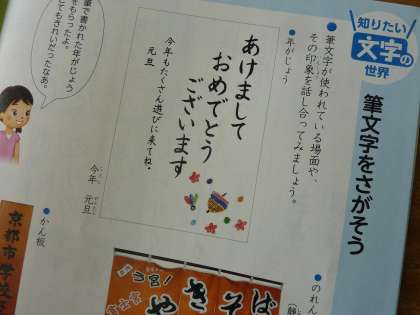 知りたい
文字の
世界
筆文字をさがそう
●筆文字が使われている場面や、
その印象を話し合ってみましょう。
●年がじょう
あけまして
おめでとう
ございます
今年もたくさん遊びに来てね。
元旦
今年 元旦
筆で書かれた年がじょう
をもらったよ。
とてもきれいだったなあ。
●のれん
●かん板
京都市学校